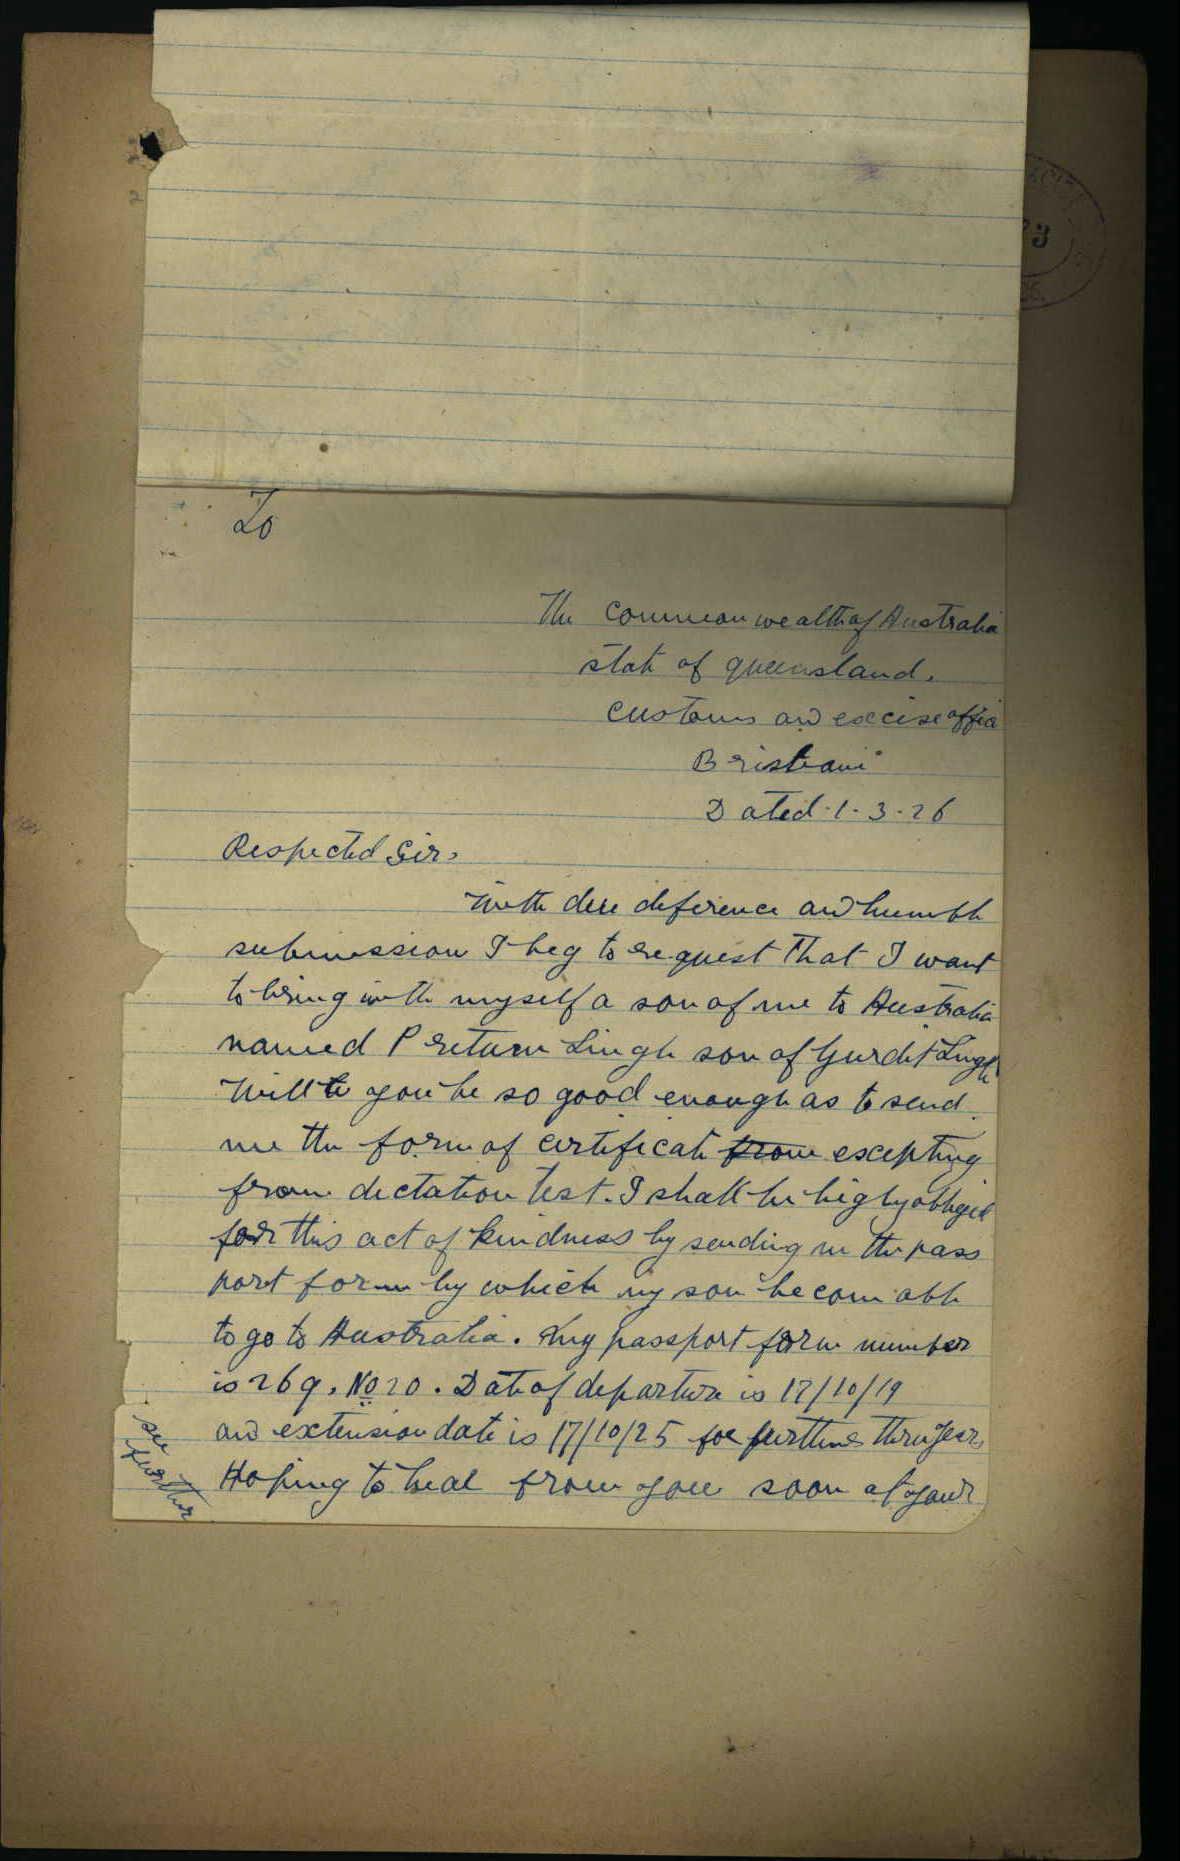 To
The Commonwealth of Australia
state of queensland.
customs and excise office
Brisbane
Dated. 1. 3. 26
Respected Sir,
With due deference and humble
submission I beg to request that I want
to bring with myself a son of me to Australia
named Pretum Singh son of Gurdit Singh
Will you be so good enough as to send
me the form of certificate from excepting
from dictation test. I shall be highly obliged
for this act of kindness by sending me the pass
port form by which my son become able
to go to Australia. My passport form number
is 269, No 20. Date of departure is 17/10/19
and extension date is 17/10/25 for further three years
Hoping to hear from you soon at your
see
further